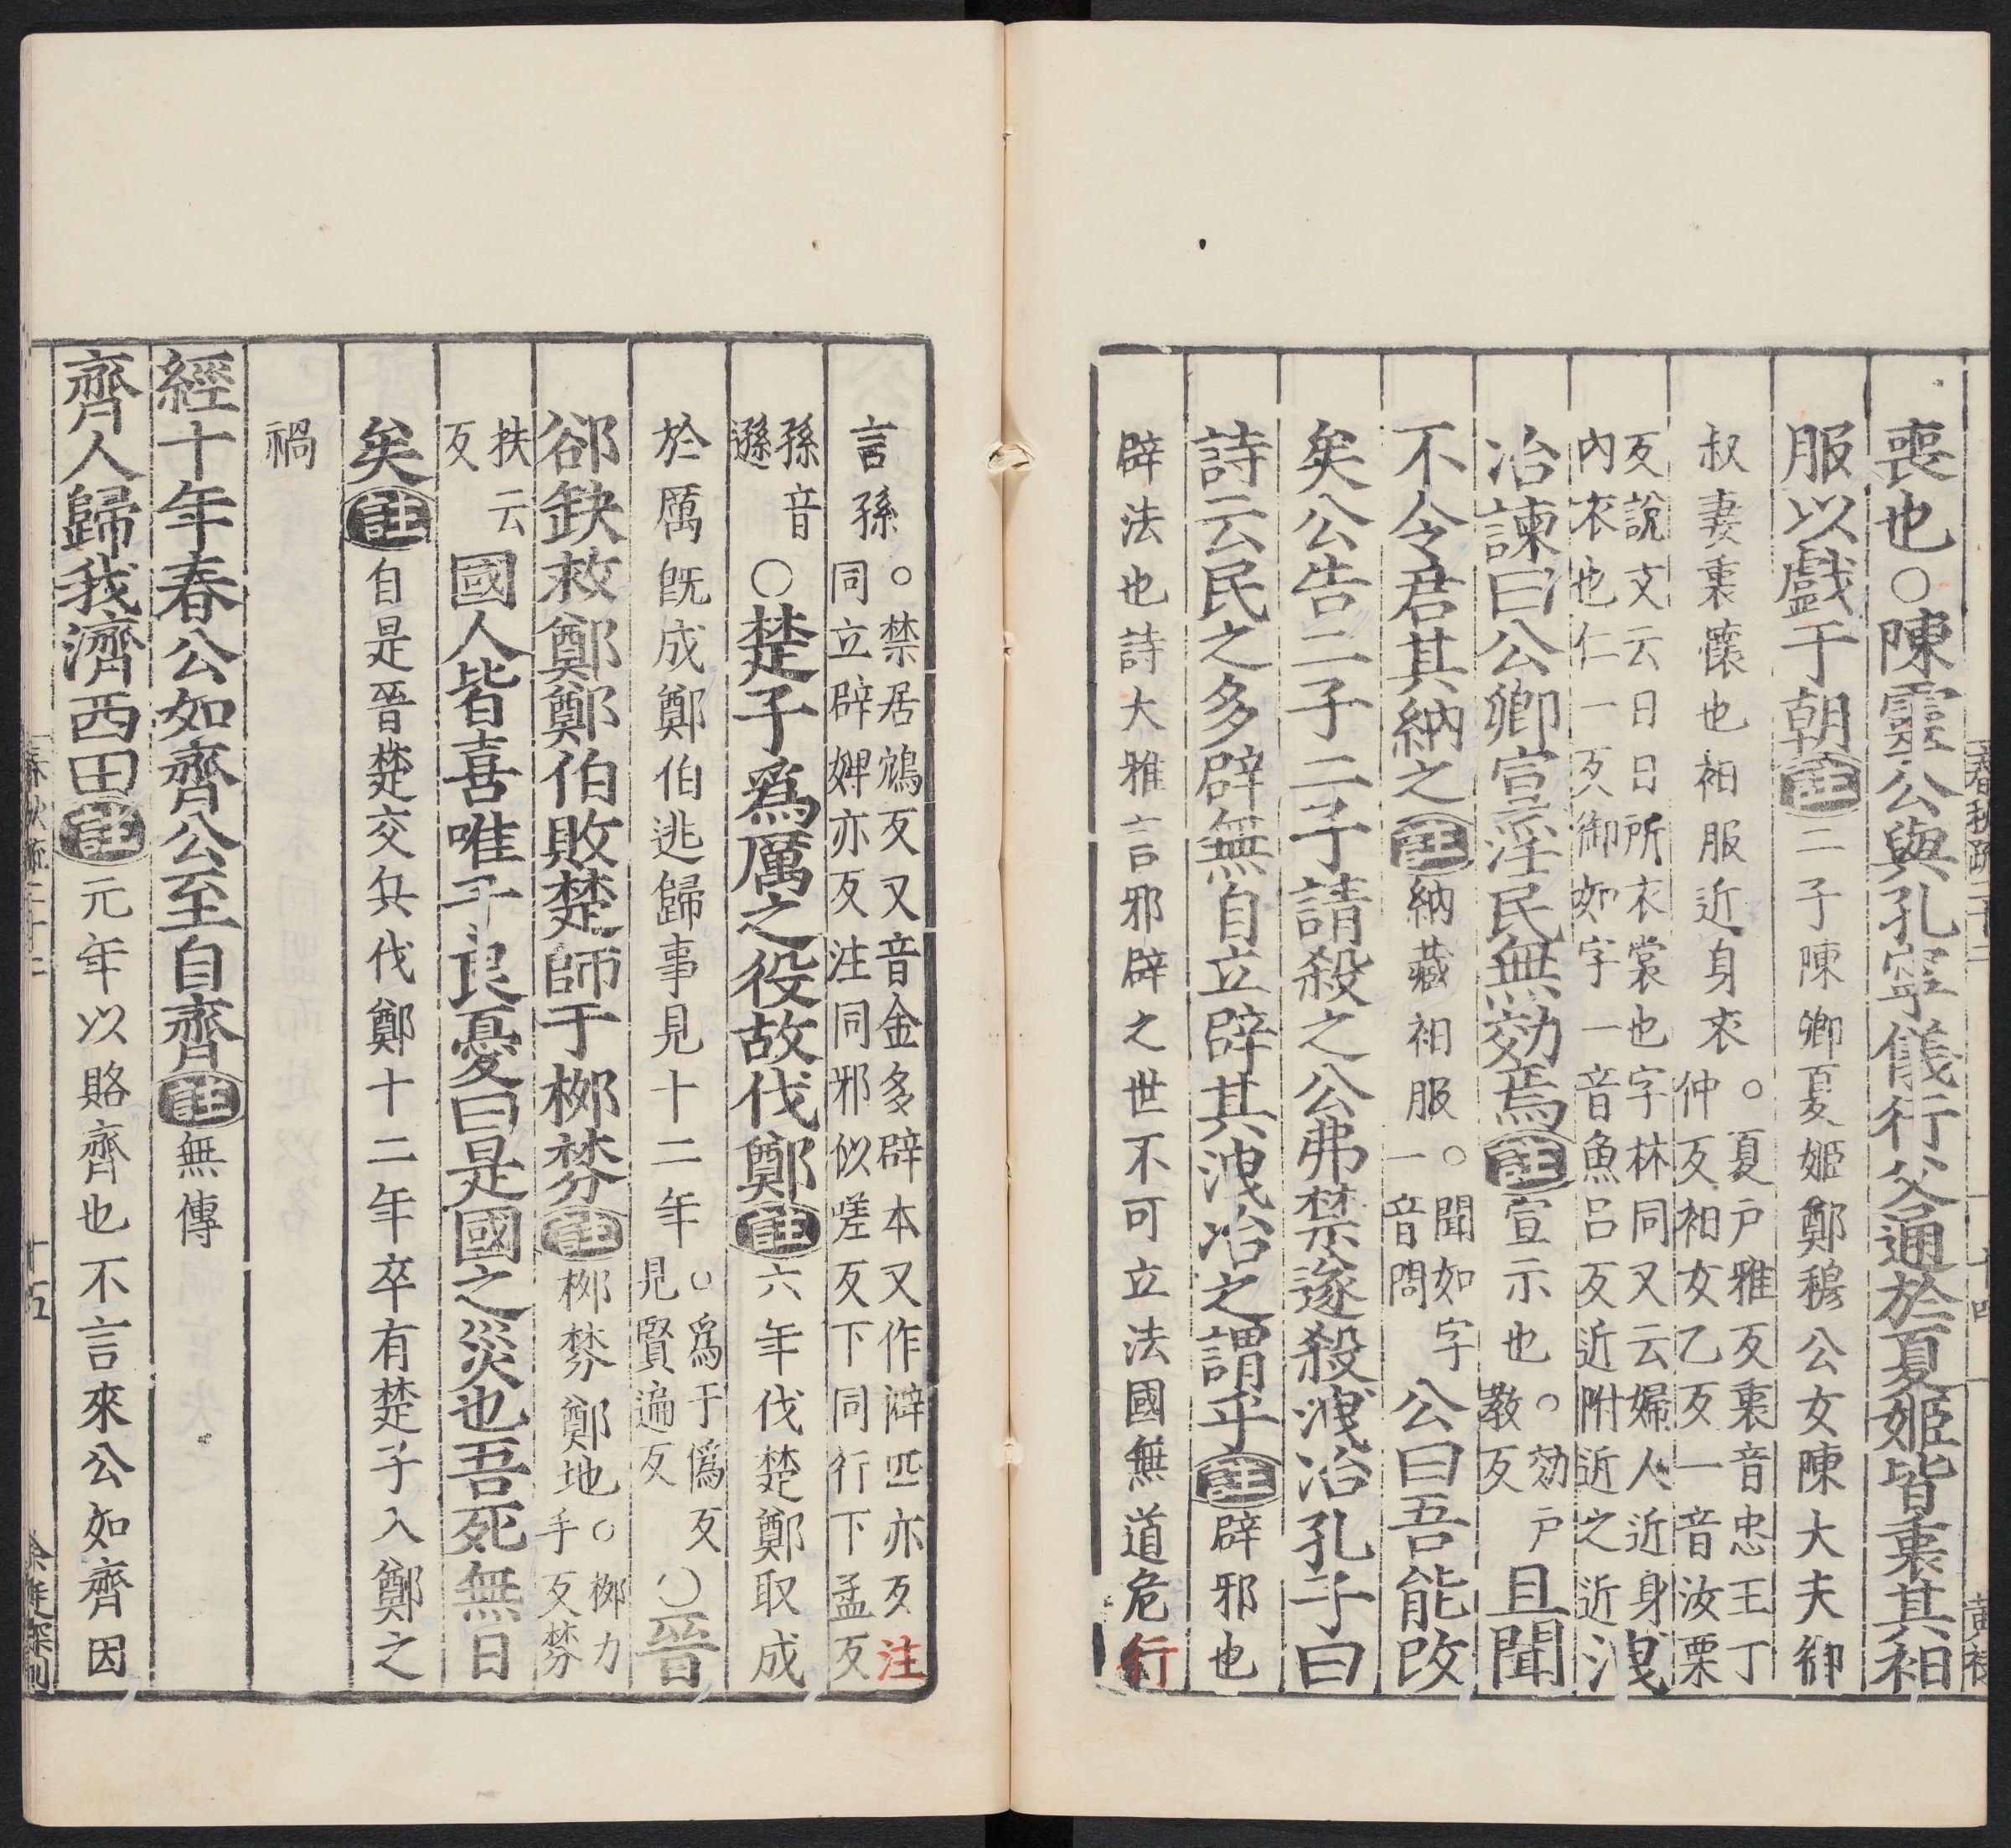 喪也○陳靈公與孔寧儀行父通於夏姬皆衷其衵
服以戲于朝註二子陳卿夏姬鄭穆公女陳大夫御
叔妻衷懷也衵服近身衣○夏戶雅反衷音忠王丁仲反衵女乙反一音汝栗
反說文云日日所衣裳也字林同又云婦人近身內衣也仁一反御如字一音魚呂反近附近之近洩
冶諫曰公卿宣淫民無効焉註宣示也○効戶教反且聞
不令君其納之註納藏衵服○聞如字一音問公曰吾能改
矣公告二子二子請殺之公弗禁遂殺洩冶孔子曰
詩云民之多辟無自立辟其洩冶之謂乎註辟邪也
辟法也詩大雅言邪辟之世不可立法國無道危行
言孫○禁居鴆反又音金多辟本又作僻匹亦反注同立辟婢亦反注同邪似嗟反下同行下孟反
孫音遜○楚子爲厲之役故伐鄭註六年伐楚鄭取成
於厲旣成鄭伯逃歸事見十一年○爲于僞反見賢遍反○晉
郤缺救鄭鄭伯敗楚師于桺棼註桺棼鄭地○桺力手反棼
扶云反國人皆喜唯子良憂曰是國之災也吾死無日
矣註自是晉楚交兵伐鄭十二年卒有楚子入鄭之
禍
經十年春公如齊公至自齊註無傳
齊人歸我濟西田註元年以賂齊也不言來公如齊因